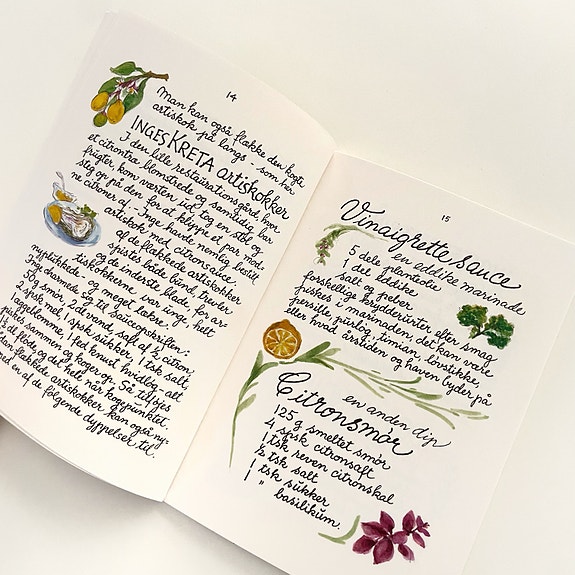 14
Man kan også flække den kogte
artiskok på langs - som her
INGES KRETA artiskokker
I den lille restaurationsgård, hvor
et citrontræ blomstrede og samtidig bar
frugter, kom værten ud, tog en stol og
steg op på den for at klippe et par mod-
ne citroner af. - Inge havde nemlig bestilt
artiskok med citronsauce,
af de flækkede artiskokker
spistes både bund, trevler
og de inderste blade, for ar-
tiskokkerne var unge, helt
nyplukkede og meget lækre.
Inge charmede sig til sauceopskriften:
50g smør, 2dl vand, saft af ½ citron,
2 spsk mel, 1 spsk sukker, 1 tsk. salt,
1 æggeblomme, 1 fed knust hvidløg, alt
piskes sammen og koges op. Så tilføjes
½ dl fløde og det hele når kogepunktet.
den flækkede artiskokker kan også ny-
med en af de følgende dyppelser til.
15
Vinaigrette sauce
en eddike marinade
5 dele planteolie
1 del eddike
salt og peber
forskellige krydderurter efter smag
fuskes i marinaden, det kan være
persille, purløg, timian, løvstikke,
eller hvad årstiden og haven byder på
en anden dip
Citronsmør
125 g smeltet smør
4 spsk citronsaft
1 tsk reven citronskal
½ tsk salt
1 tsk sukker
1 " basilikum.